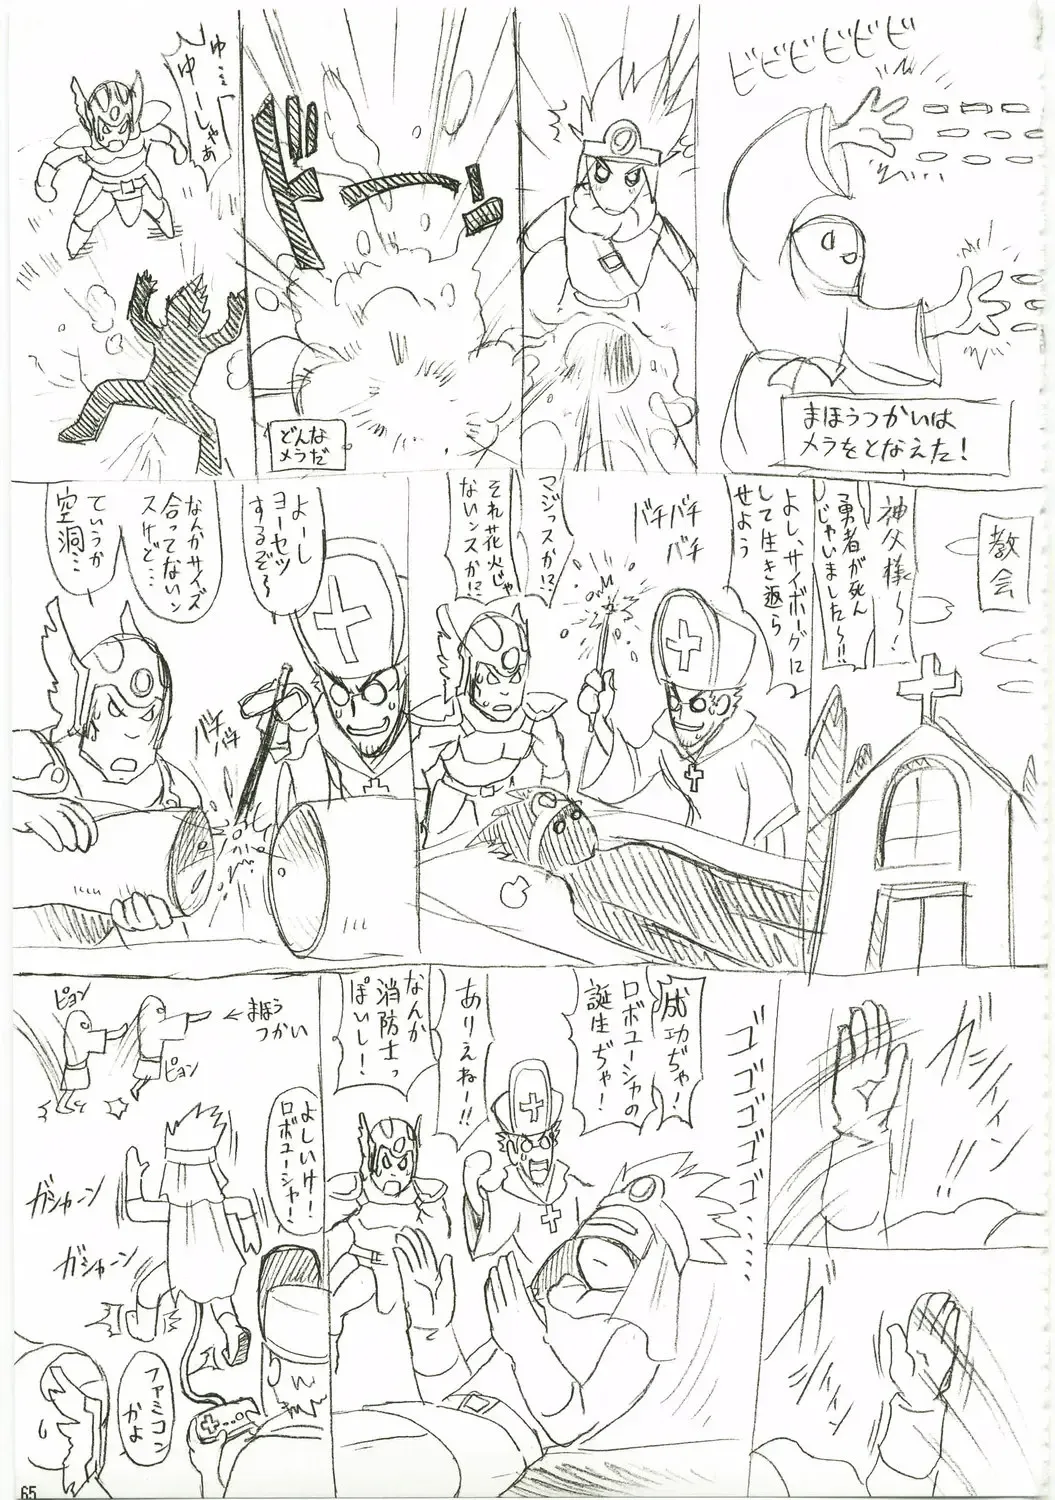 ビビビビビビ
まほうつかいは
メラをとなえた！
ドーン
どんな
メラだ
ゆ…
ゆーしゃあ
教会
神父様〜！
勇者が死ん
じゃいました〜!!
よし、サイボーグに
して生き返ら
せよう
バチバチ
バチ
マジっスか!?
それ花火じゃ
ないンスか!?
よーし
ヨーセツ
するぞ〜
バチ
バチ
なんかサイズ
合ってないン
スけど…
ていうか
空洞…
ガシィィン
ゴゴゴゴゴゴ……
成功ぢゃ！
ロボユーシャの
誕生ぢゃ！
ありえねー!!
なんか
消防士っ
ぽいし！
よしいけ！
ロボユーシャー！
ピョン
ピョン
←まほう
つかい
ガシャーン
ガシャーン
ファミコン
かよ
65